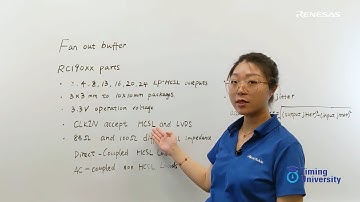 RENESAS
Fan out buffer
RC190xx parts
4, 8, 13, 16, 20, 24 LP-HCSL outputs
3x3 mm to 10x10mm packages
3.3V operation voltage
CLKIN accept HCSL and LVDS
85Ω and 100Ω impedance
Direct-Coupled HCSL
AC-coupled non HCSL
jitter
output jitter² - input jitter²
Timing
University